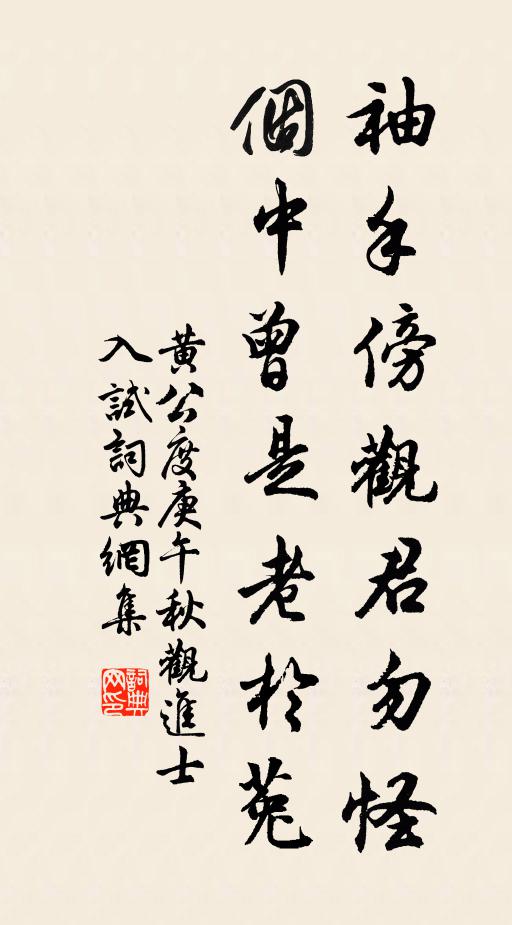 袖手傍觀君勿怪
個中曾是老於菟
黃公度庚午秋觀進士
入試詞典網集
詞典網印